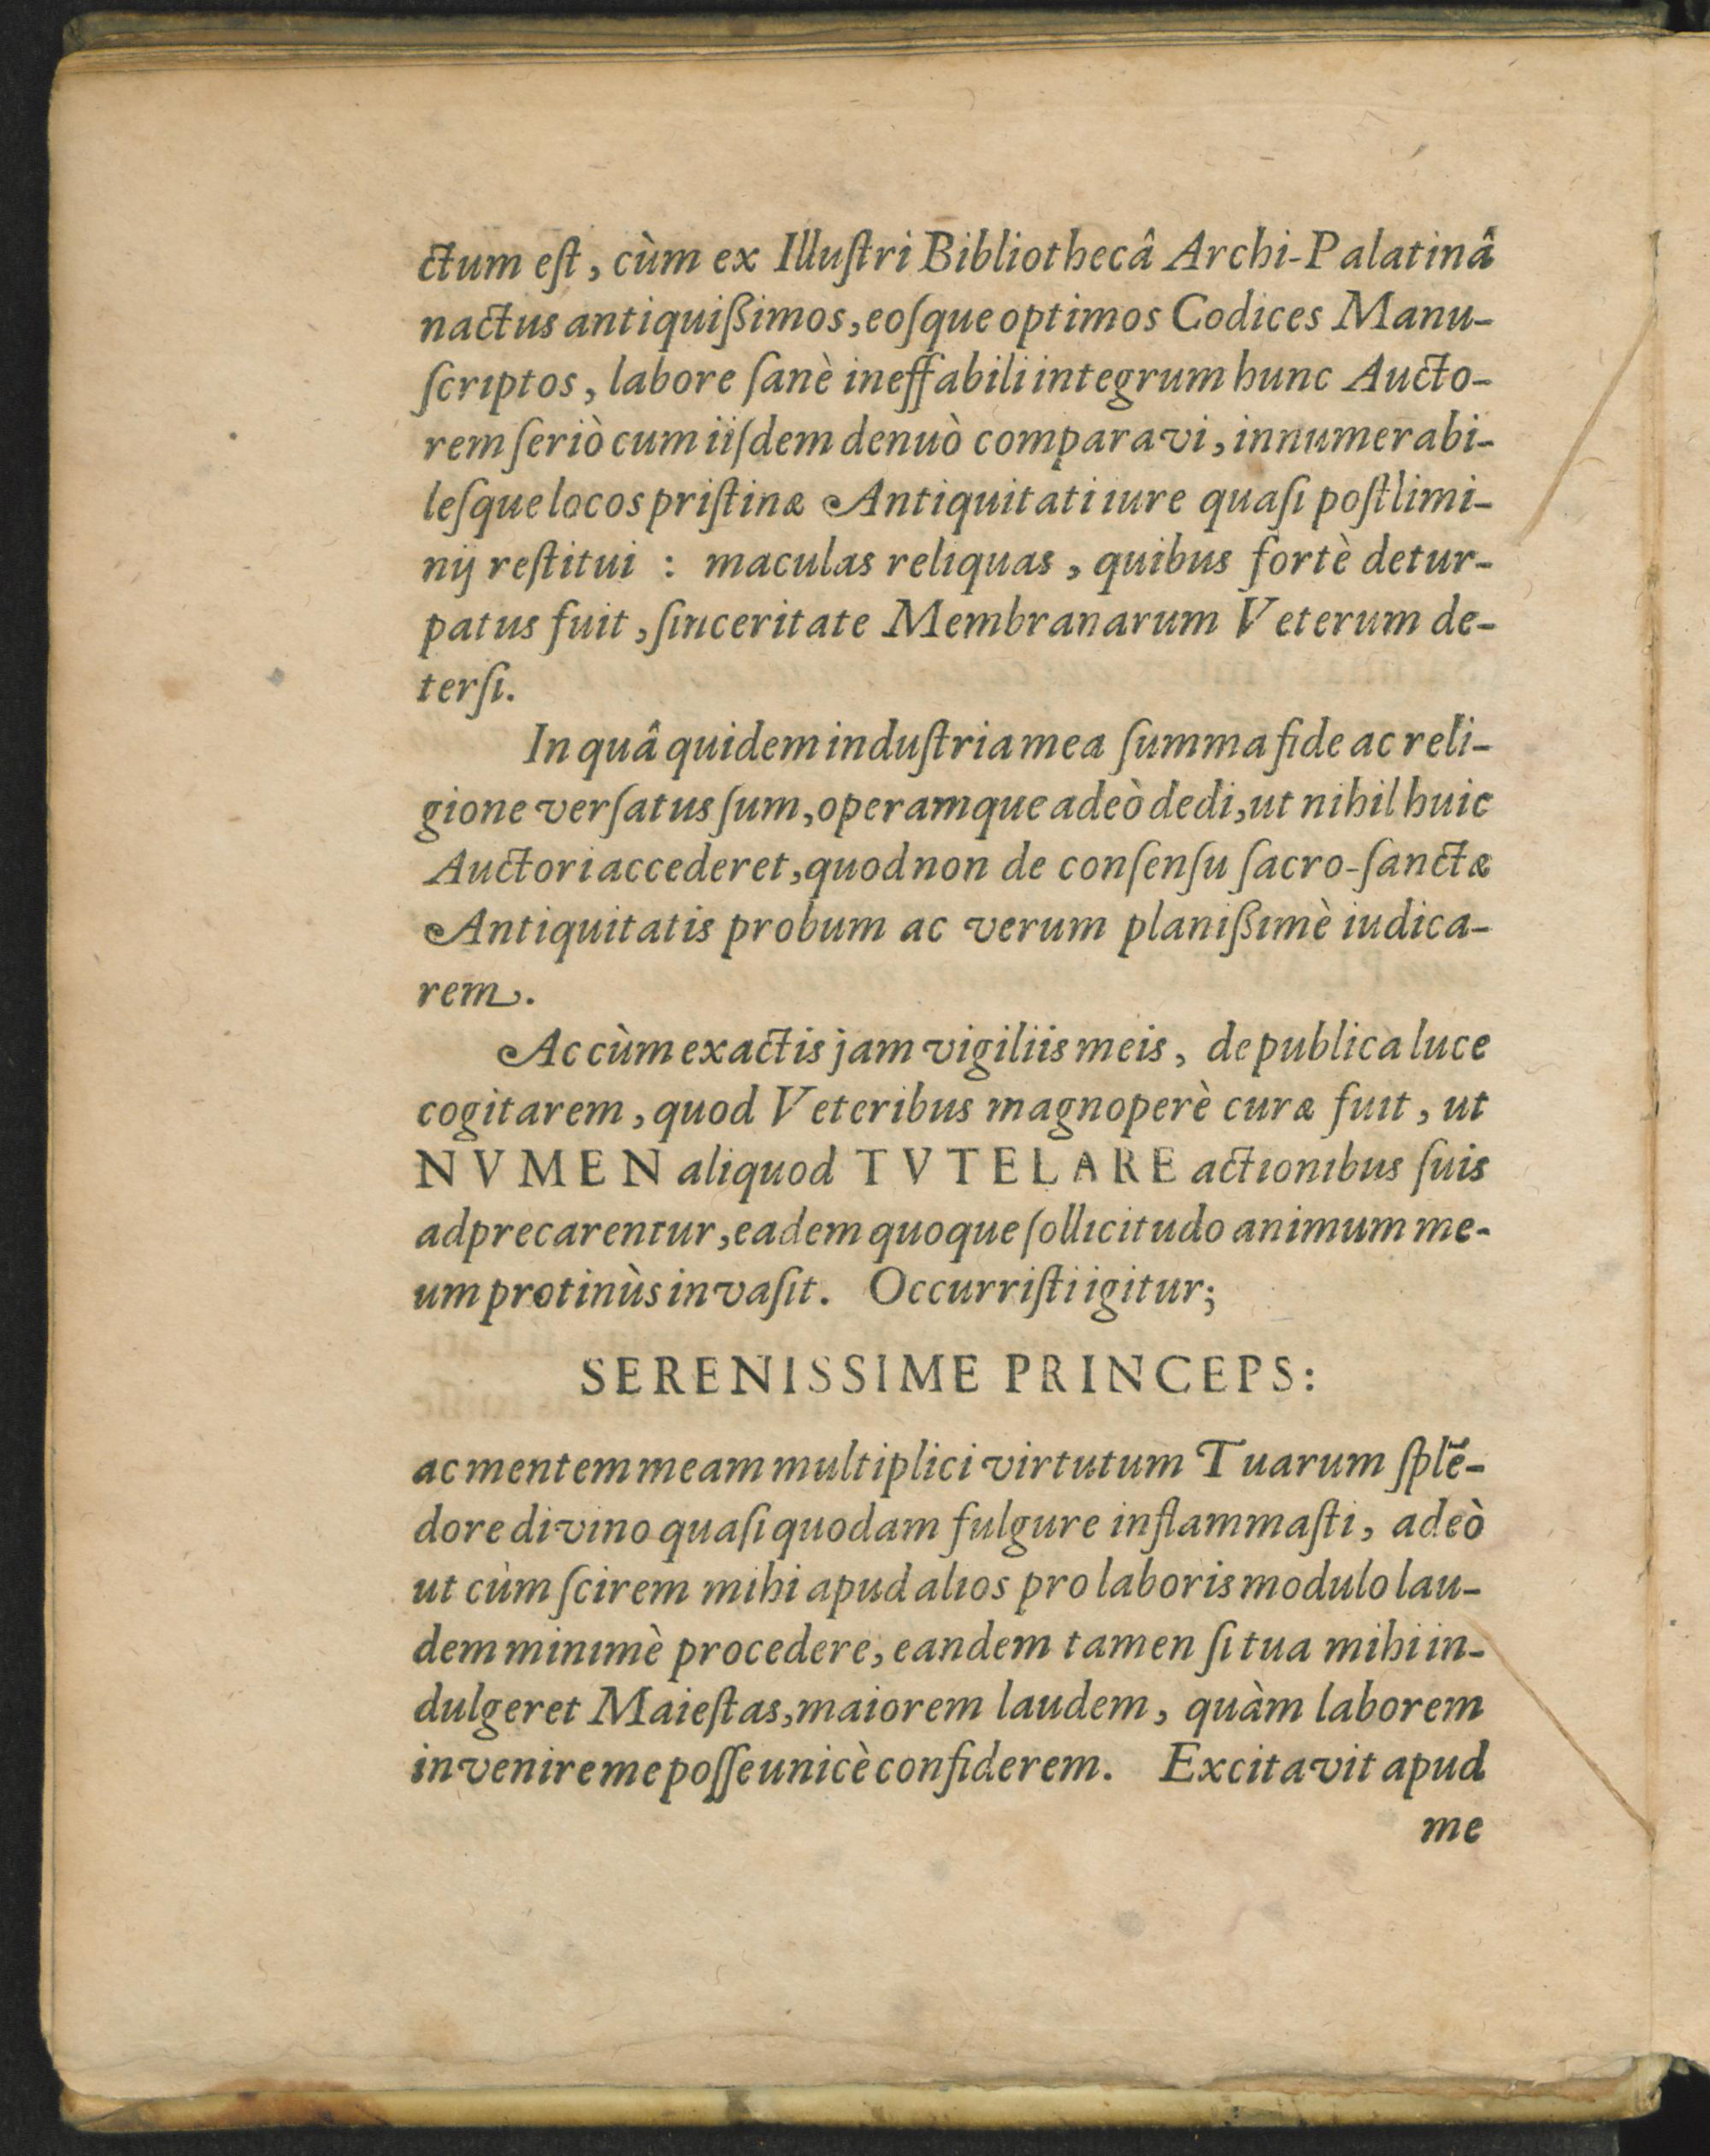 ctum eſt, cùm ex Illuſtri Bibliothecâ Archi-Palatinâ
nactus antiquißimos, eoſque optimos Codices Manu-
ſcriptos, labore ſanè ineffabili integrum hunc Aucto-
rem ſeriò cum iiſdem denuò comparavi, innumerabi-
leſque locos priſtinæ Antiquitati iure quaſi poſtlimi-
nij reſtitui : maculas reliquas, quibus fortè detur-
patus fuit, ſinceritate Membranarum Veterum de-
terſi.
In quâ quidem induſtria mea ſumma fide ac reli-
gione verſatus ſum, operamque adeò dedi, ut nihil huic
Auctori accederet, quod non de conſenſu ſacro-ſanctæ
Antiquitatis probum ac verum planißimè iudica-
rem.
Ac cùm exactis jam vigiliis meis, de publica luce
cogitarem, quod Veteribus magnoperè curæ fuit, ut
NVMEN aliquod TVTELARE actionibus ſuis
adprecarentur, eadem quoque ſollicitudo animum me-
um protinùs invaſit. Occurriſti igitur;
SERENISSIME PRINCEPS:
ac mentem meam multiplici virtutum Tuarum ſplē-
dore divino quaſi quodam fulgure inflammaſti, adeò
ut cùm ſcirem mihi apud alios pro laboris modulo lau-
dem minimè procedere, eandem tamen ſi tua mihi in-
dulgeret Maieſtas, maiorem laudem, quàm laborem
invenire me poſſe unicè confiderem. Excitavit apud
me